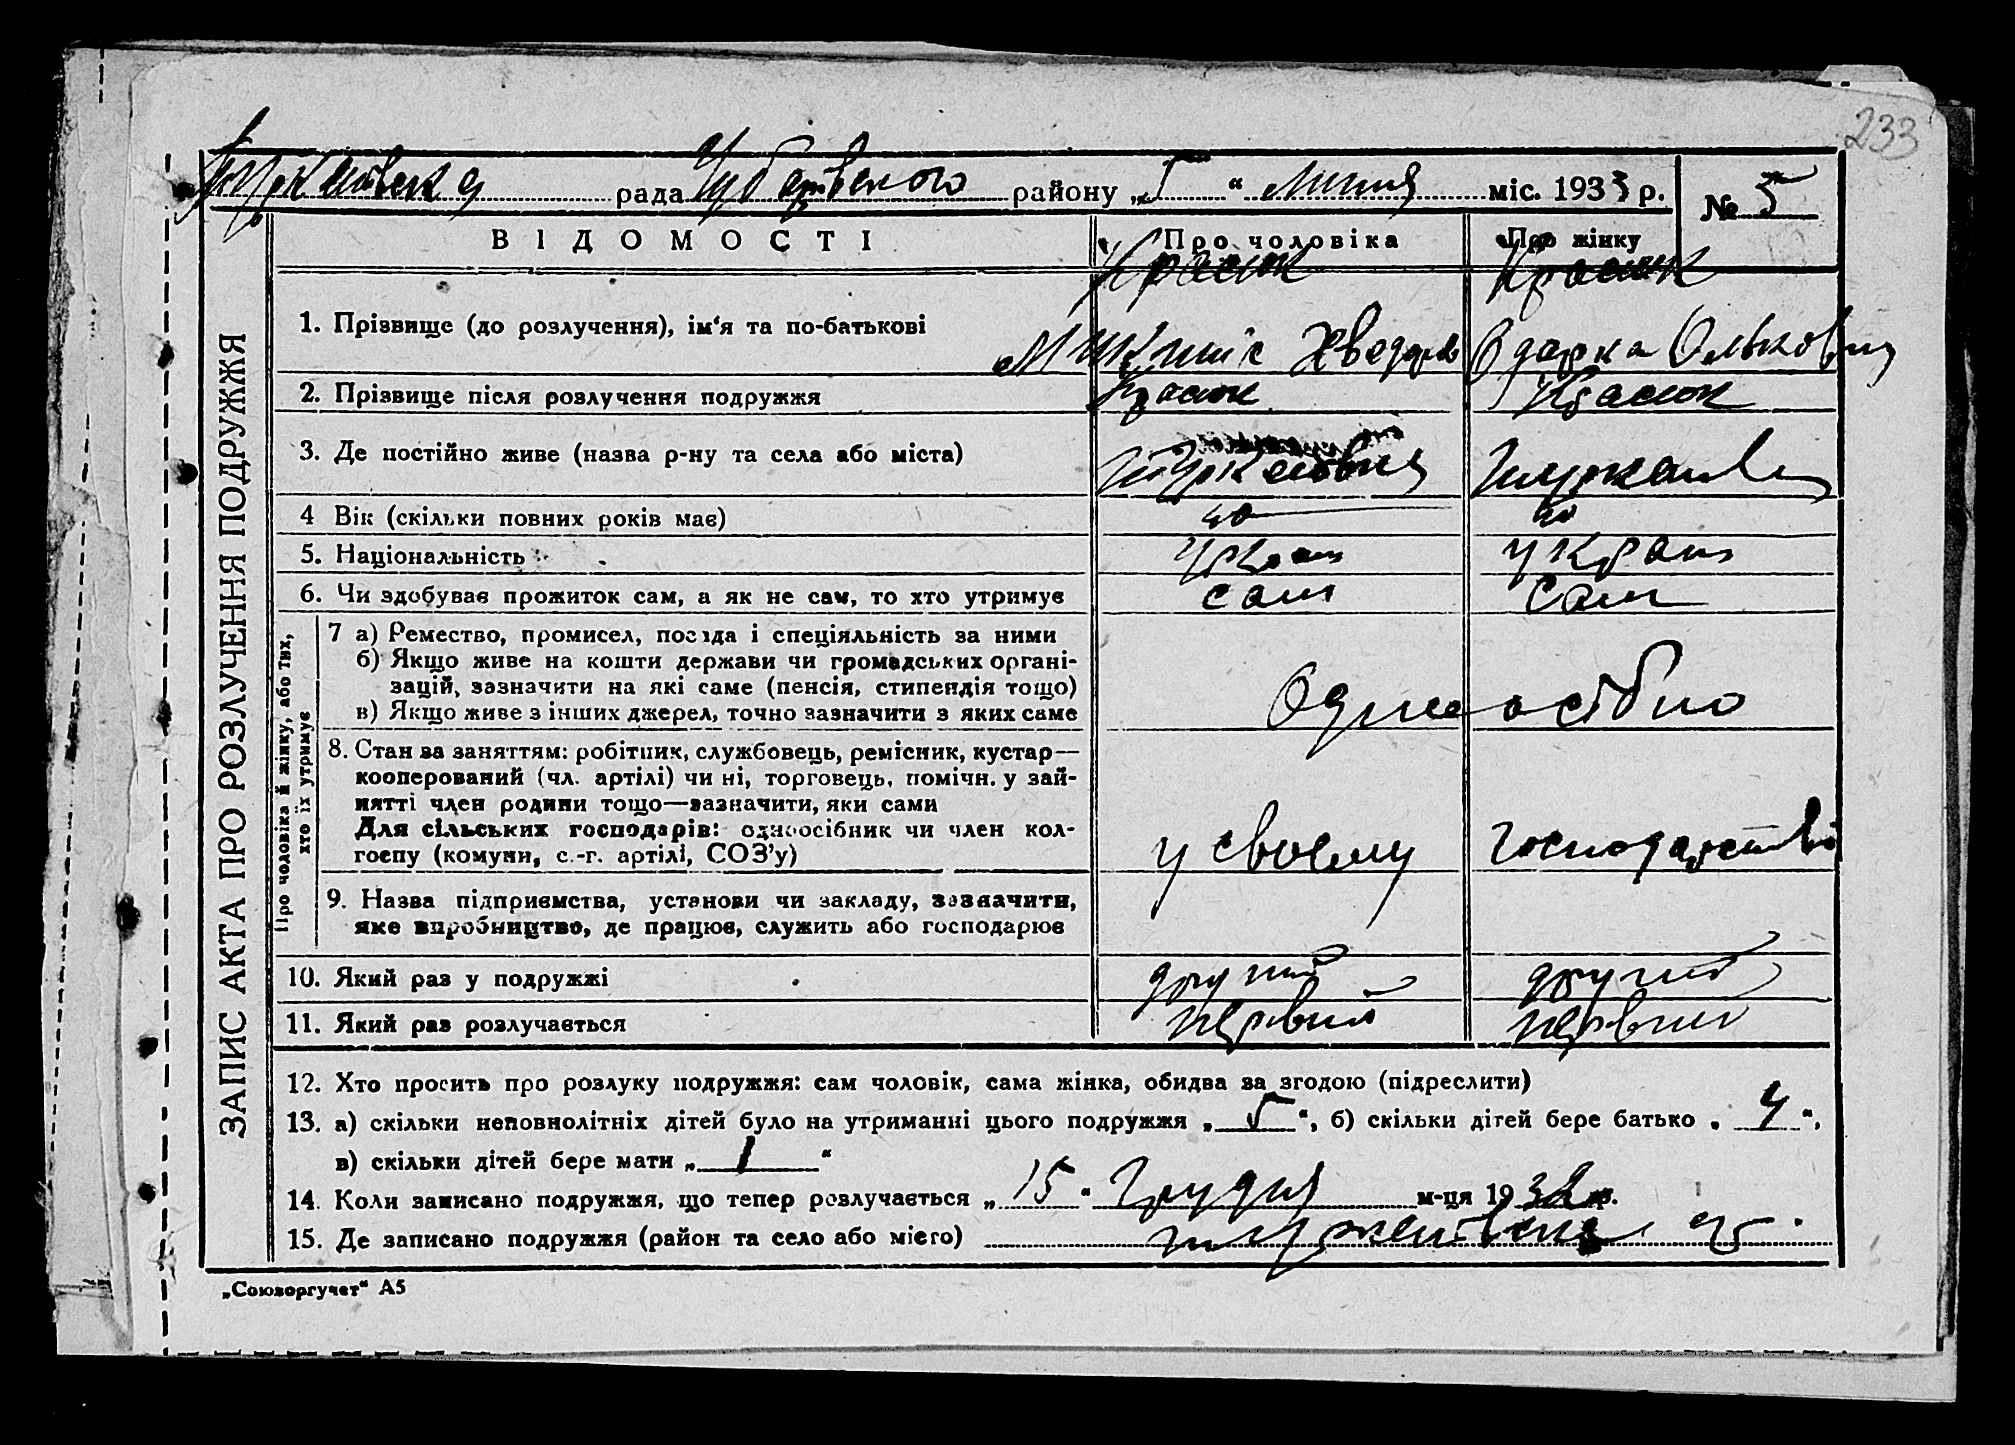 233
рада Чубарівського району „5“ Липня міс. 1933 р. № 5
ВІДОМОСТІ Про чоловіка Про жінку
Красюк Красюк
1. Прізвище (до розлучення), ім'я та по-батькові
Одарка
2. Прізвище після розлучення подружжя Красюк Красюк
3. Де постійно живе (назва р-ну та села або міста)
4 Вік (скільки повних років має) 40 40
5. Національність україн
6. Чи здобуває прожиток сам, а як не сам, то хто утримує сам сам
7 а) Ремество, промисел, посада і спеціяльність за ними
б) Якщо живе на кошти держави чи громадських органі-
зацій, зазначити на які саме (пенсія, стипендія тощо)
в) Якщо живе з інших джерел, точно зазначити з яких саме
Одноосібно
8. Стан за заняттям: робітник, службовець, ремісник, кустар—
кооперований (чл. артілі) чи ні, торговець, помічн. у зай-
нятті член родини тощо—зазначити, яки сами
Для сільських господарів: одноосібник чи член кол-
госпу (комуни, с.-г. артілі, СОЗ'у)
у своєму господарстві
9. Назва підприємства, установи чи закладу, зазначити,
яке виробництво, де працює, служить або господарює
10. Який раз у подружжі другий другий
11. Який раз розлучається первий первий
12. Хто просить про розлуку подружжя: сам чоловік, сама жінка, обидва за згодою (підреслити)
13. а) скільки неповнолітніх дітей було на утриманні цього подружжя „5“, б) скільки дітей бере батько „4“,
в) скільки дітей бере мати „1“
14. Коли записано подружжя, що тепер розлучається „15“ Грудня м-ця 1932 р.
15. Де записано подружжя (район та село або місто)
„Союзоргучет“ А5
ЗАПИС АКТА ПРО РОЗЛУЧЕННЯ ПОДРУЖЖЯ
Про чоловіка й жінку, або тих,
хто їх утримує